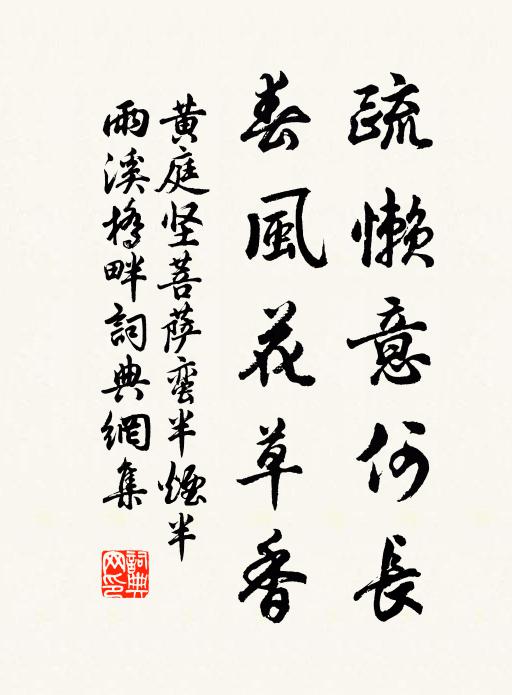 疏懶意何長
春風花草香
黄庭坚菩萨蛮半煙半
雨溪橋畔詞典網集
詞典網印